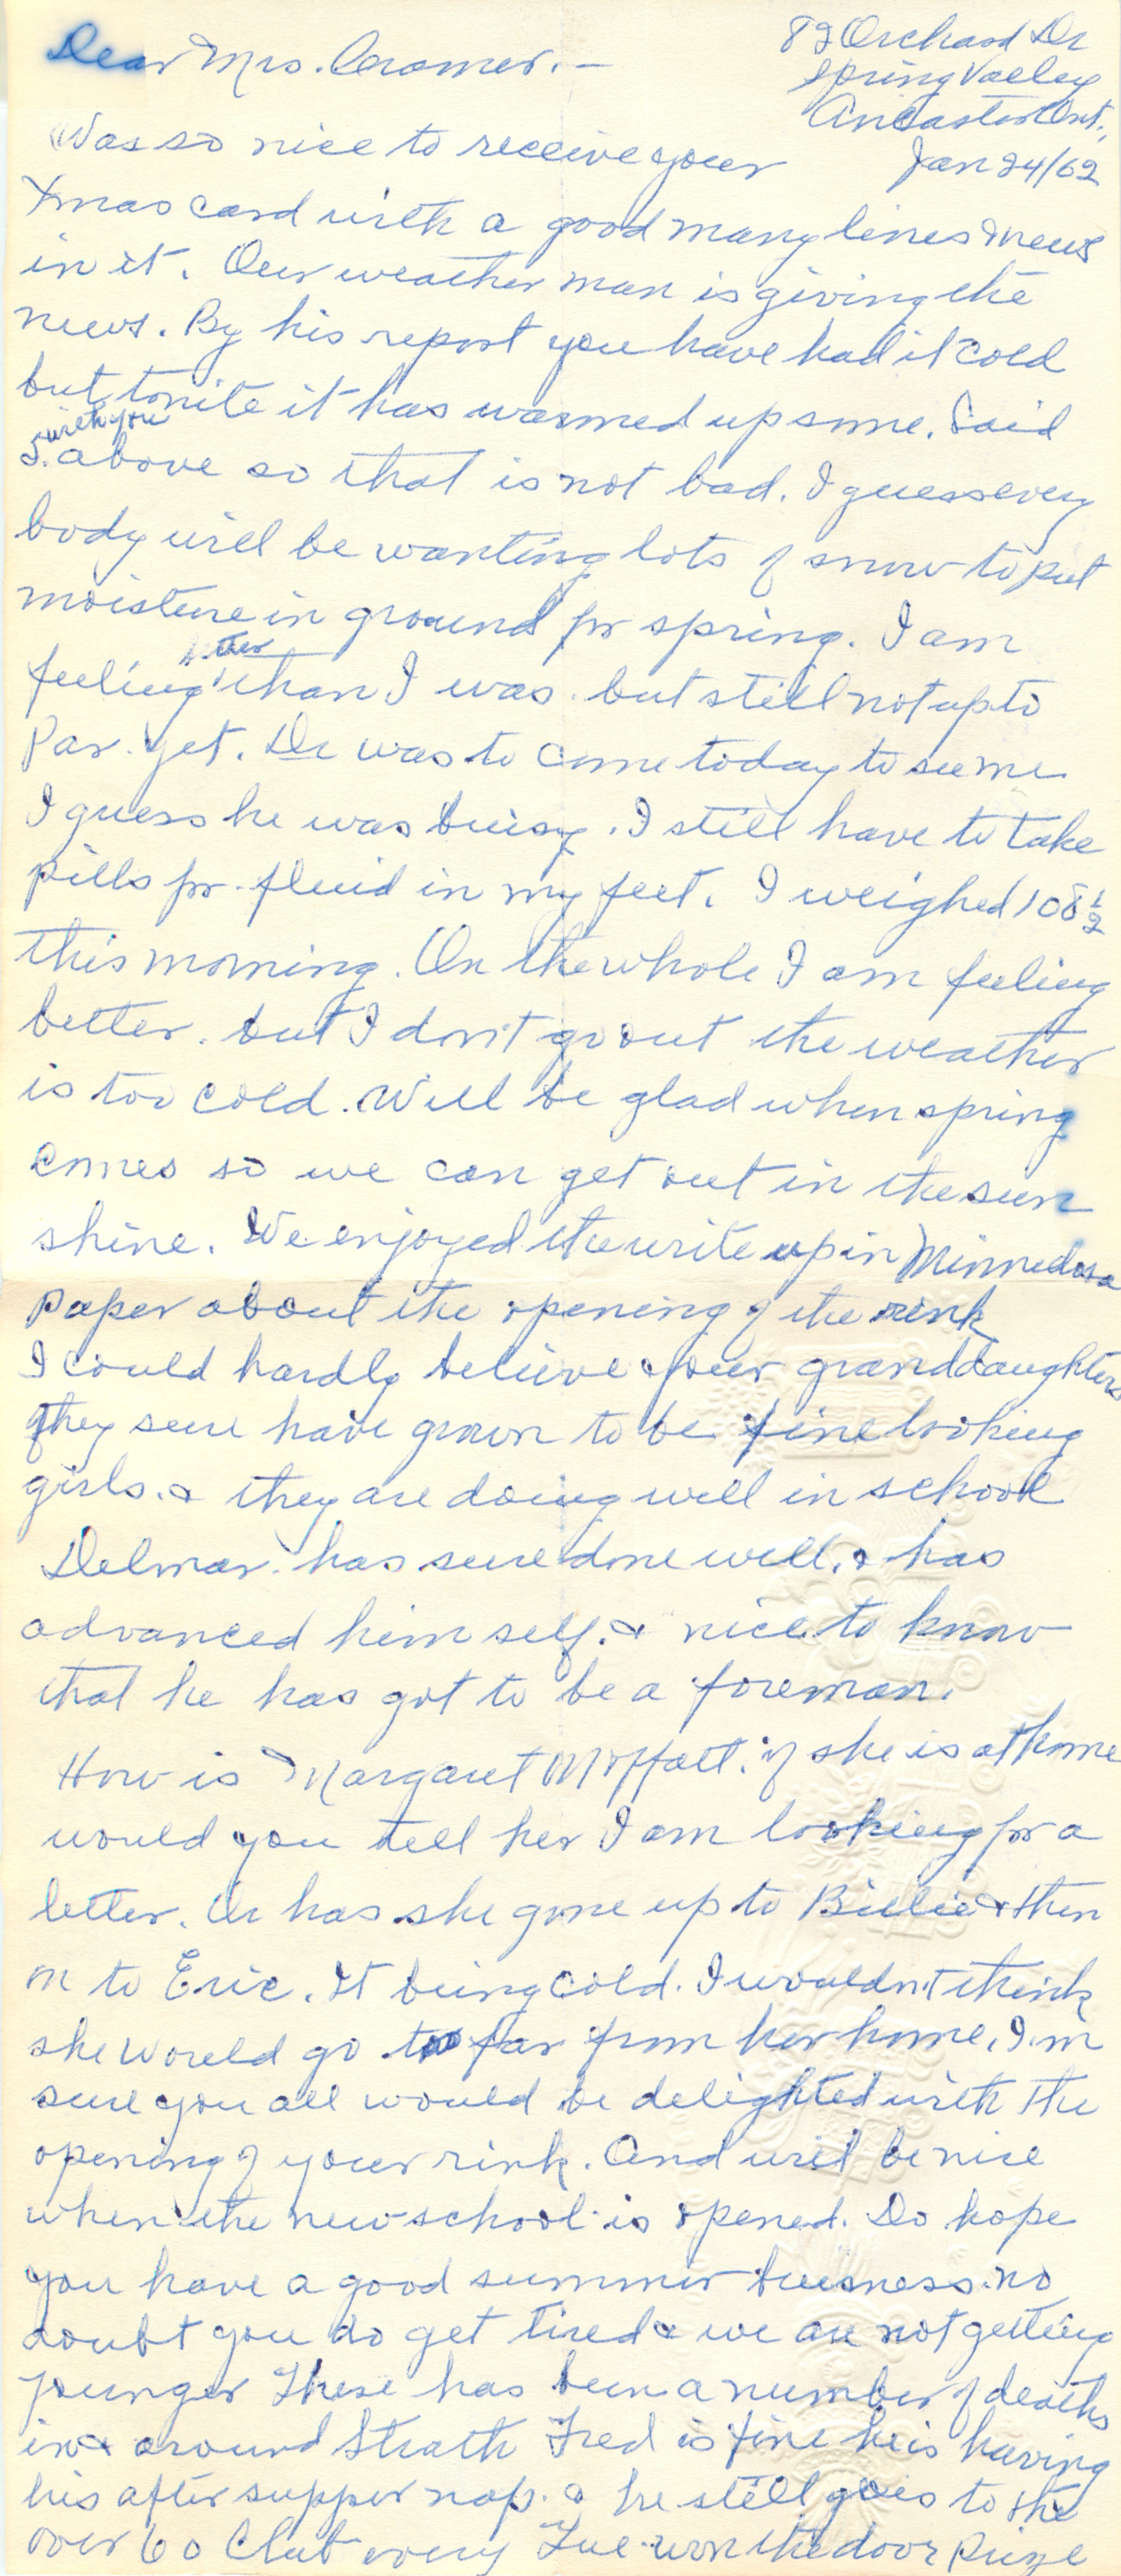 82 Orchard Dr
Spring Valley
Ancaster Ont.,
Jan 24/62
Dear Mrs. Cramer. –
Was so nice to receive your
Xmas card with a good many lines & news
in it. Our weather man is giving the
news. By his report you have had it cold
but tonite it has warmed up some. Said
with you
5. above so that is not bad. I guess every
body will be wanting lots of snow to put
moisture in ground for spring. I am
better
feeling than I was but still not up to
Par yet. Dr was to come today to see me
I guess he was buisy. I still have to take
pills for fluid in my feet. I weighed 108 1/2
this morning. On the whole I am feeling
better. but I don't go out the weather
is too cold. Will be glad when spring
comes so we can get out in the sun
shine. We enjoyed the write up in Minnedosa
paper about the opening of the rink
I could hardly believe your granddaughters
they sure have grown to be fine looking
girls. & they are doing well in school
Delmar has sure done well. & has
advanced himself. & nice to know
that he has got to be a foreman.
How is Margaret Moffatt. if she is at home
would you tell her I am looking for a
letter. Or has she gone up to Billie & then
on to Eric. It being cold. I wouldn't think
she would go too far from her home. I'm
sure you all would be delighted with the
opening of your rink. And will be nice
when the new school is opened. Do hope
you have a good summer buisness. no
doubt you do get tired & we are not getting
younger There has been a number of deaths
in & around Strath Fred is fine he is having
his after supper nap. & he still goes to the
over 60 Club every Tue. won the door prize